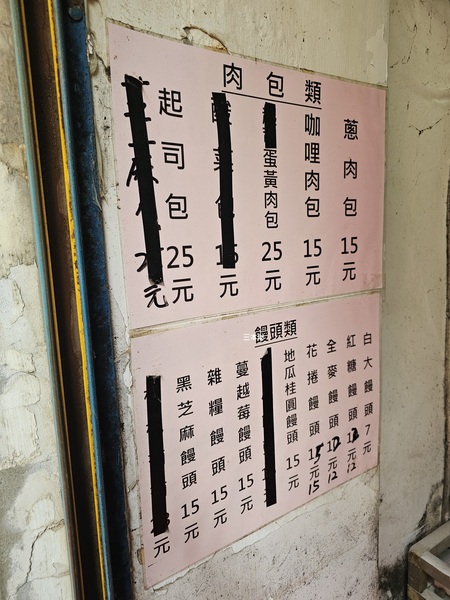 肉包類
蔥肉包 15元
咖哩肉包 15元
蛋黃肉包 25元
酸菜包 15元
起司包 25元
元
饅頭類
白大饅頭 7元
紅糖饅頭 元 12
全麥饅頭 元 12
花捲饅頭 元 15
地瓜桂圓饅頭 15元
蔓越莓饅頭 15元
雜糧饅頭 15元
黑芝麻饅頭 15元
元